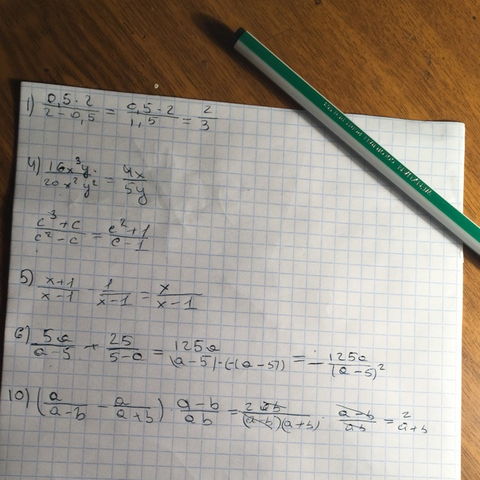 1) (0,5·2)/(2-0,5) = (0,5·2)/(1,5) = 2/3
4) (16x³y)/(20x²y²) = (4x)/(5y)
(c³+c)/(c²-c) = (c²+1)/(c-1)
5) (x+1)/(x-1) - 1/(x-1) = x/(x-1)
6) (5a)/(a-5) + (25)/(5-a) = (125a)/((a-5)·(-(a-5))) = -(125a)/((a-5)²)
10) (a/(a-b) - a/(a+b)) (a-b)/(ab) = (2ab)/((a-b)(a+b)) · (a-b)/(ab) = 2/(a+b)